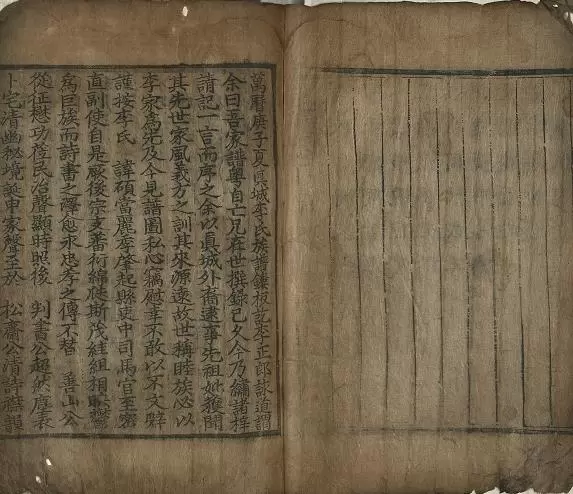 萬曆庚子夏眞城李氏族譜鏤板訖李正郎詠道謂
余曰吾家譜粤自亡兄在世撰錄已久今乃繡諸梓
請記一言而序之余以眞城外裔逮事先祖妣獲聞
其先世家風義方之訓其來源遠故世稱睦族必以
李家爲先及今見譜圖私心竊慰幸不敢以不文辭
謹按李氏 諱碩當麗季肇起縣吏中司馬官至密
直副使自是厥後宗支蕃衍綿綿斯茂珪組相聯鬱
爲巨族而詩書之澤愈永忠孝之傳不替 善山公
從征懋功莅民治聲顯時照後 判書公超然塵表
卜宅清幽秘境誕申家聲至於 松齋公清詩雅韻